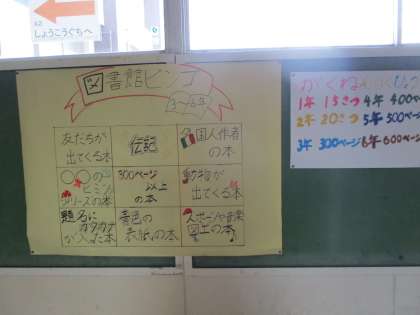 しょうこうぐちへ
図書館ビンゴ
3〜6年
友だちが
出てくる本
伝記
外国人作者
の本
○○の
ヒミツ
シリーズの本
300ページ
以上
の本
動物が
出てくる本
題名に
カタカナ
が入った本
青色の
表紙の本
スポーツや音楽
図工の本
がくねん
1年 15さつ
4年 400ページ
2年 20さつ
5年 500ページ
3年 300ページ
6年 600ページ